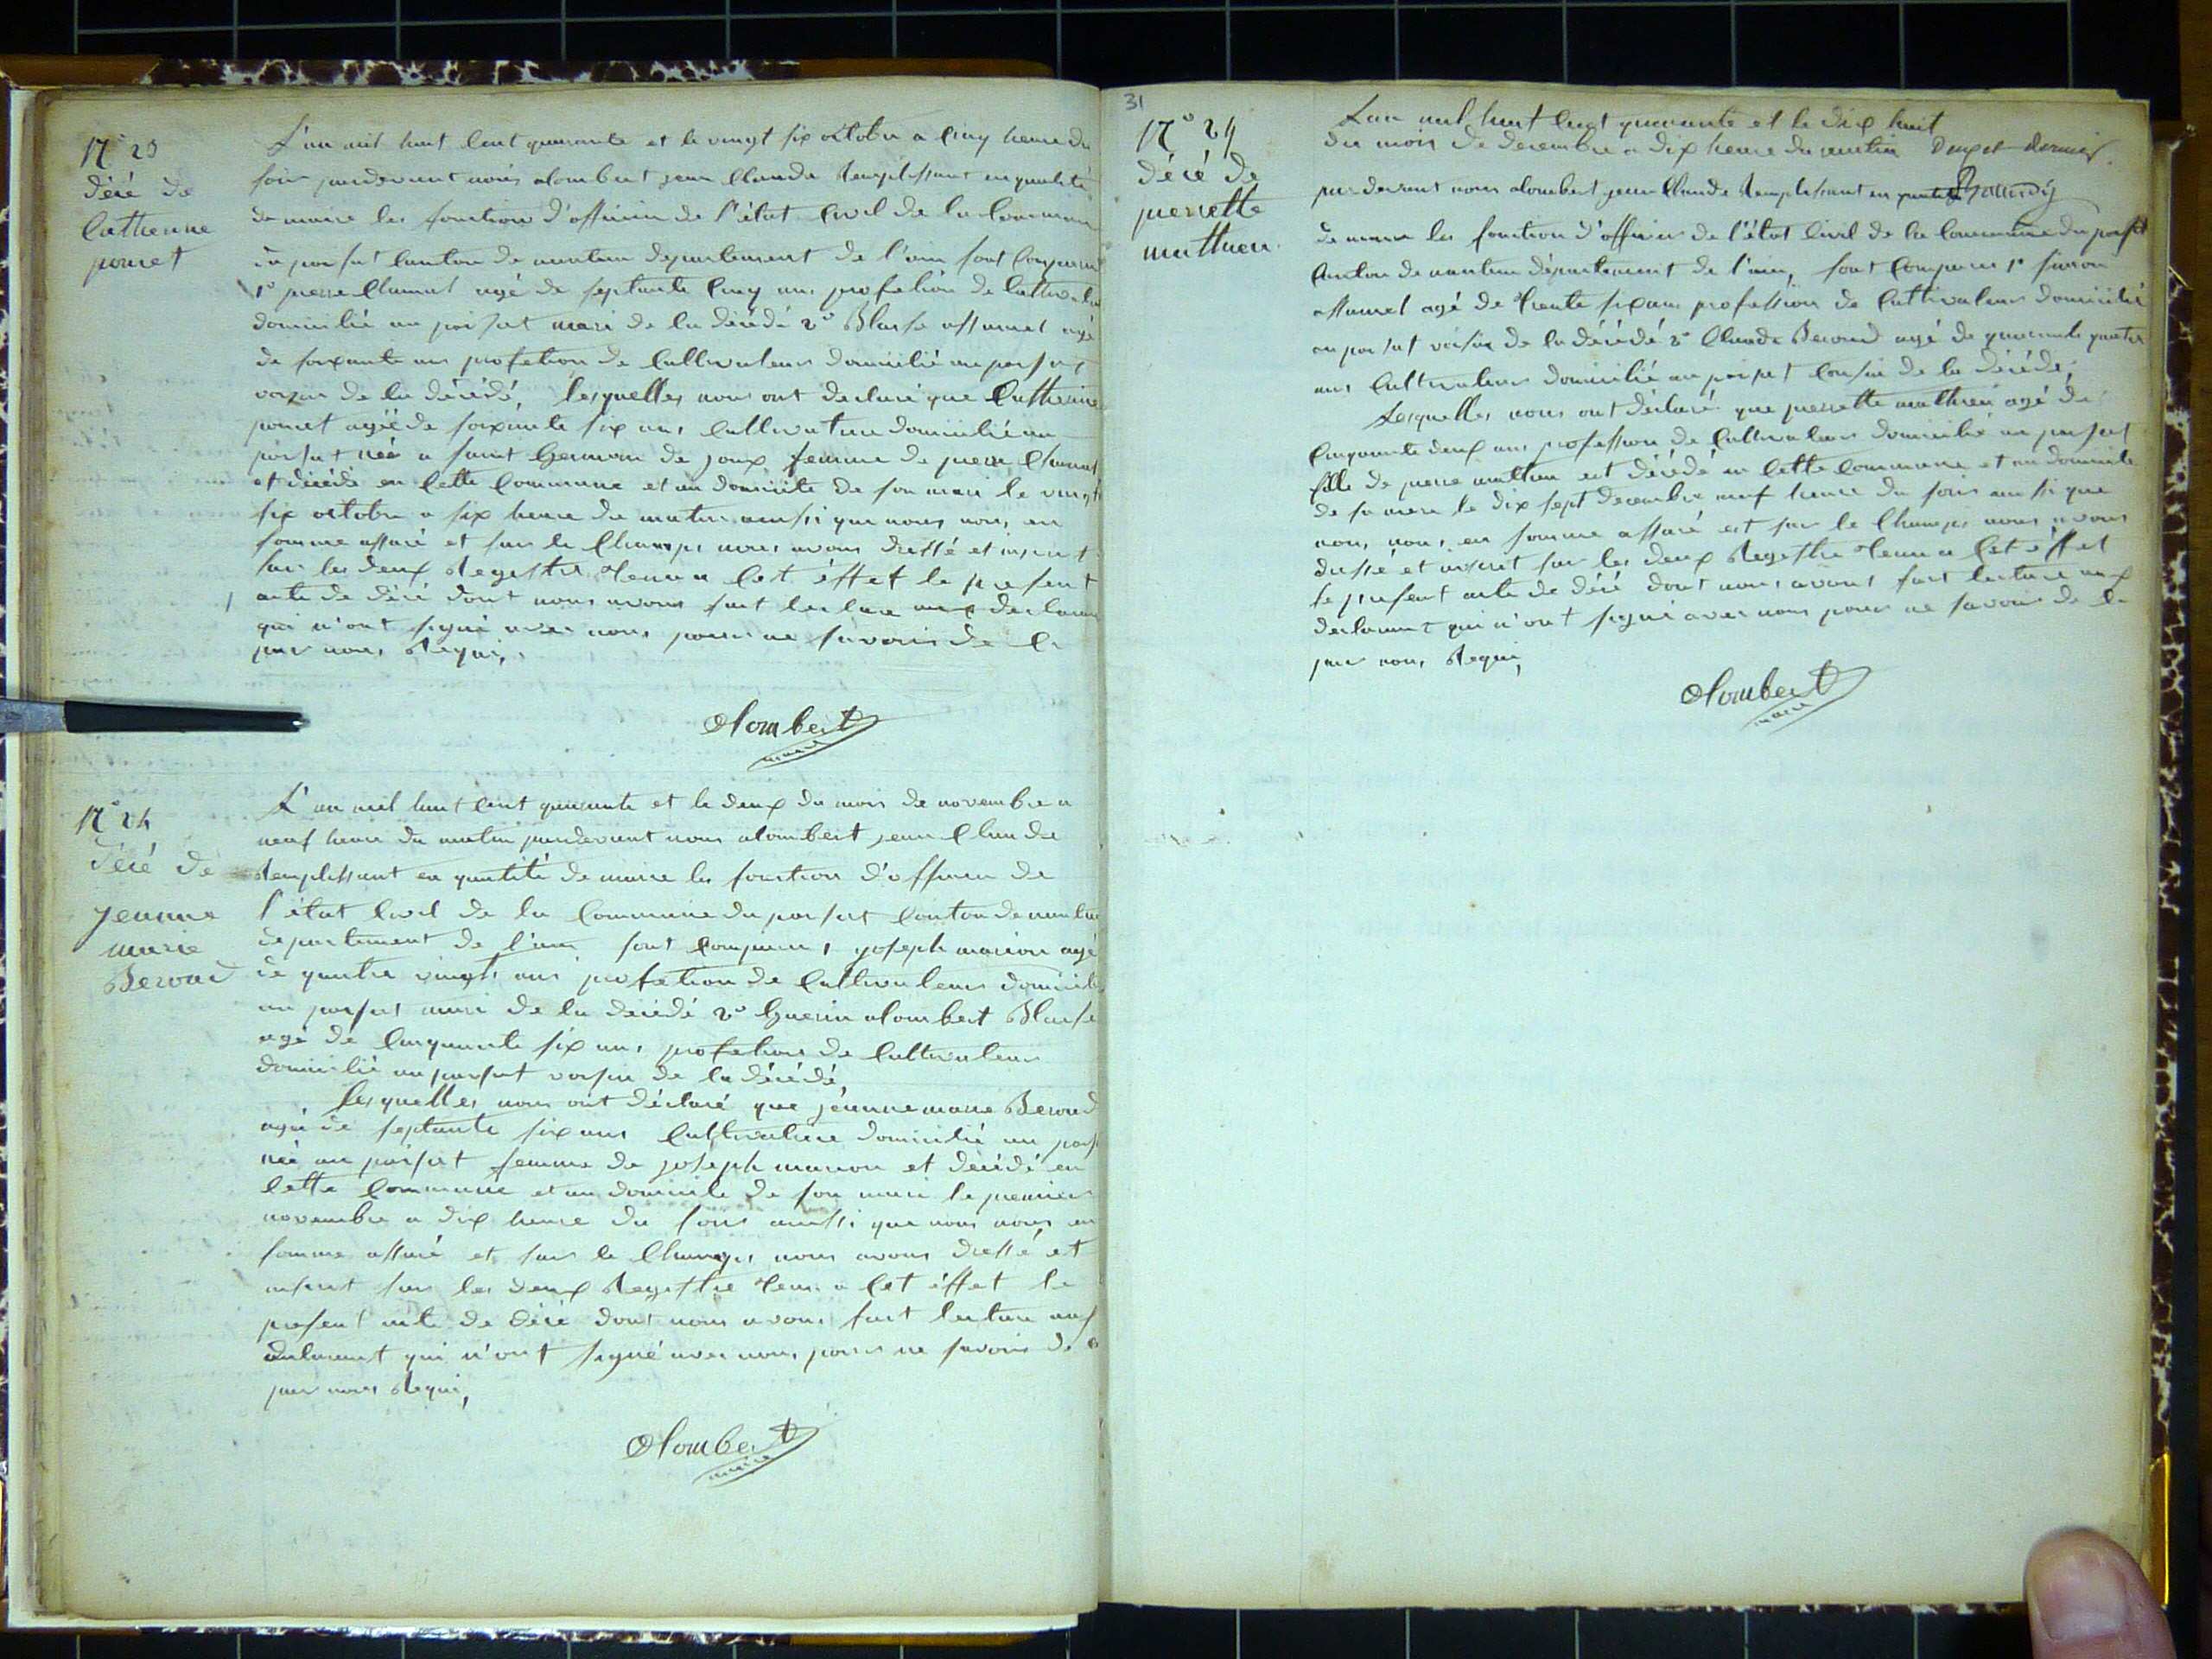 N° 23
décé de
Catherine
poncet
L'an mil huit cent quarante et le vingt six octobre a cinq heure du
soir pardevant nous alombert jean Claude Remplissant en qualité
de maire les fonction d'officier de l'état civil de la Commune
du poisat canton de nantua departement de l'ain sont comparu
1° pierre Chamat agé de septante cinq ans profetion de Cultivateur
domicilié au poisat mari de la décédé 2° Blaise assumel agé
de soixante ans profetion de Cultivateur domicilié au poisat
voisin de la décédé, lesquelles nous ont declaré que Catherine
poncet agéé de soixante six ans Cultivatrice domicilié au
poisat née a saint Germain de joux femme de pierre Chamat
et décédé en cette Commune et au domicile de son mari le vingt
six octobre a six heure du matin ainsi que nous nous en
somme assuré et sur le Champs nous avons dressé et inscrit
sur les deux Registre tenu a cet éffet le present
acte de décé dont nous avons fait lecture aux declarant
qui n'ont signé avec nous pour ne savoir de ce
par nous Requi,
alombert
maire
N° 24
décé de
jeanne
marie
Beroud
L'an mil huit cent quarante et le deux du mois de novembre a
neuf heure du matin pardevant nous alombert jean Claude
Remplissant en qualité de maire les fonction d'officier de
l'état civil de la Commune du poisat Canton de nantua
departement de l'ain sont comparu 1 joseph marion agé
de quatre vingts ans profetion de Cultivateur domicilié
au poisat mari de la décédé 2° Guerin alombert Blaise
agé de Cinquante six ans profetion de Cultivateur
domicilié au poisat voisin de la décédé,
Lesquelles nous ont déclaré que jéanne marie Beroud
agée de septante six ans Cultivatrice domicilié au pois
née au poisat femme de joseph marion et décédé en
cette Commune et au domicile de son mari le premier
novembre a dix heure du soir ainssi que nous nous en
somme assuré et sur le Champs nous avons dressé et
inscrit sur les deux Registre tenu a cet éffet le
present acte de décé dont nous avons fait lecture aux
declarant qui n'ont signé avec nous pour ne savoir de ce
par nous Requi,
alombert
maire
31
N° 24
décé de
pierrette
mathieu
L'an mil huit cent quarante et le dix huit
du mois de decembre a dix heure du matin Dix et dernier.
par devant nous alombert jean Claude Remplissant en qualité
de maire les fonction d'officier de l'état civil de la Commune du poisat
Canton de nantua département de l'ain, sont comparu 1° simon
assumel agé de trente six ans profession de Cultivateur domicilié
au poisat voisin de la décédé 2° Claude Beroud agé de quarante quatre
ans Cultivateur domicilié au poisat Cousin de la décédé,
Lesquelles nous ont déclaré que pierrette mathieu agé de
Cinquante deux ans profession de Cultivateur domicilié au poisat
fille de pierre mathieu est décédé en cette commune et au domicile
de sa mere le dix sept decembre neuf heure du soir ainssi que
nous nous en somme assuré est sur le Champs nous avons
dressé et inscrit sur les deux Registre tenu a cet éffet
le present acte de décé dont nous avons fait lecture aux
declarant qui n'ont signé avec nous pour ne savoir de ce
par nous Requi,
alombert
maire